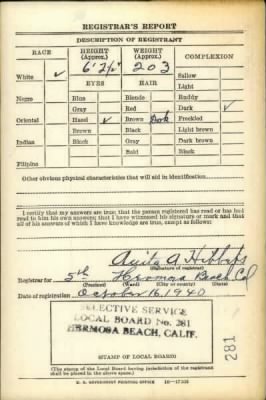 REGISTRAR'S REPORT
DESCRIPTION OF REGISTRANT
RACE HEIGHT (Approx.) WEIGHT (Approx.) COMPLEXION
White ✓ 6' 2½" 203 Sallow
EYES HAIR Light
Negro Blue Blonde Ruddy
Gray Red Dark ✓
Oriental Hazel ✓ Brown Dark Freckled
Brown Black Light brown
Indian Black Gray Dark brown
Bald Black
Filipino
Other obvious physical characteristics that will aid in identification
I certify that my answers are true; that the person registered has read or has had
read to him his own answers; that I have witnessed his signature or mark and that
all of his answers of which I have knowledge are true, except as follows:
Anita A Hibbets
(Signature of registrar)
Registrar for 5th Hermosa Beach Cal
(Precinct) (Ward) (City or county) (State)
Date of registration October 16, 1940
SELECTIVE SERVICE
LOCAL BOARD No. 281
HERMOSA BEACH, CALIF.
281
(STAMP OF LOCAL BOARD)
(The stamp of the Local Board having jurisdiction of the registrant
shall be placed in the above space.)
U. S. GOVERNMENT PRINTING OFFICE 16—17105